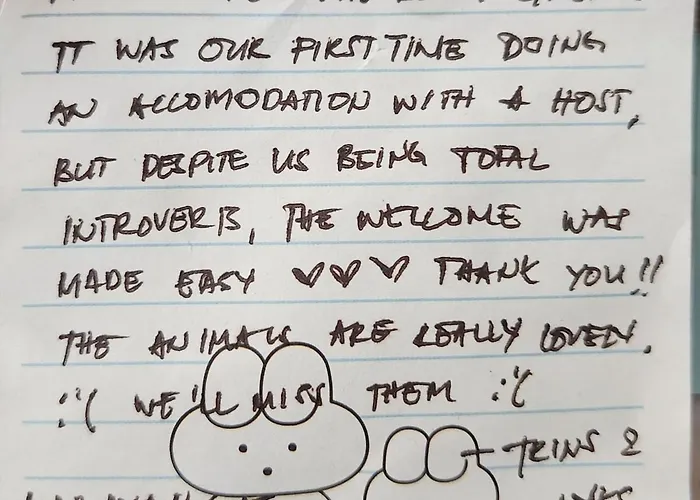 IT WAS OUR FIRST TIME DOING
AN ACCOMODATION WITH A HOST,
BUT DESPITE US BEING TOTAL
INTROVERTS, THE WELCOME WAS
MADE EASY ♡♡♡ THANK YOU!!
THE ANIMALS ARE REALLY LOVELY.
:'( WE'LL MISS THEM :'(
- TRINS &